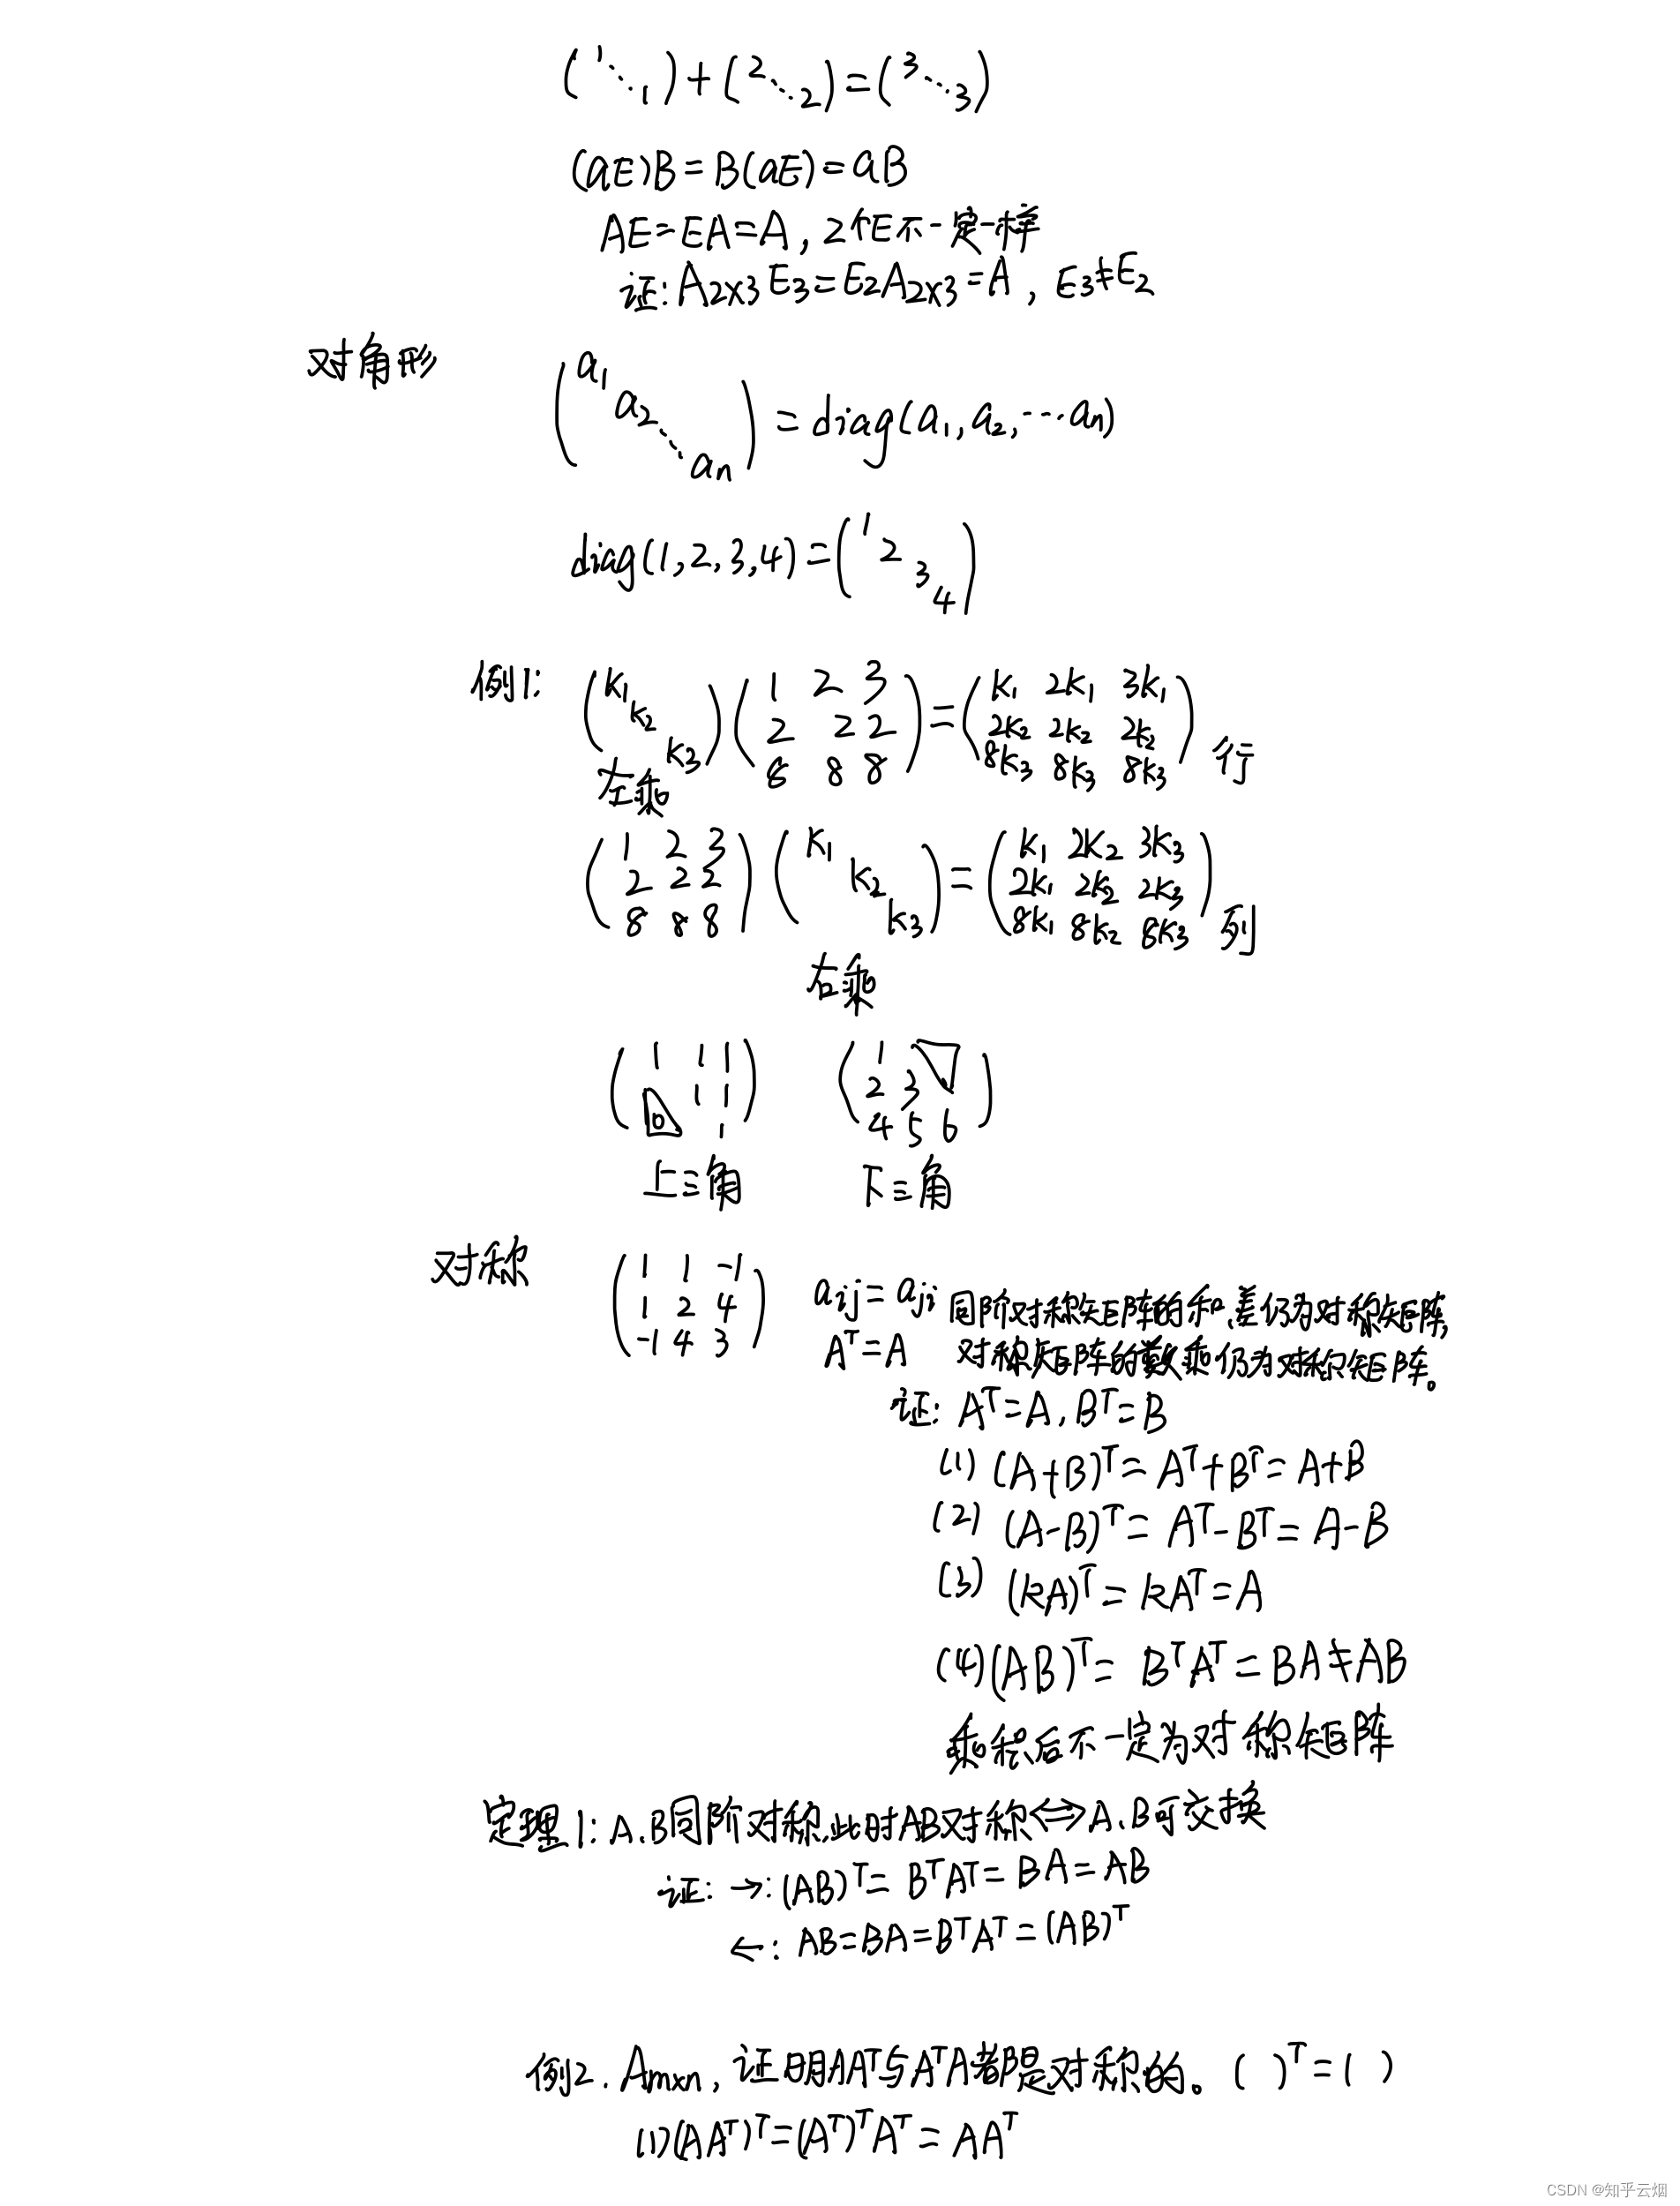 (1⋱1)+(2⋱2)=(3⋱3)
(aE)B=B(aE)=aB
AE=EA=A,2个E不一定一样
证:A₂ₓ₃E₃=E₂A₂ₓ₃=A, E₃≠E₂
对角形
(a₁ a₂ ⋱ aₙ) = diag(a₁,a₂,…aₙ)
diag(1,2,3,4)=(1 2 3 4)
例1:
(k₁ (1 2 3 (k₁ 2k₁ 3k₁
k₂ 2 2 2 = 2k₂ 2k₂ 2k₂
k₃) 8 8 8) 8k₃ 8k₃ 8k₃) 行
左乘
(1 2 3 (k₁ (k₁ 2k₂ 3k₃
2 2 2 k₂ = 2k₁ 2k₂ 2k₃
8 8 8) k₃) 8k₁ 8k₂ 8k₃) 列
右乘
(1 1 1 (1
1 1 2 3
0 1) 4 5 6)
上三角 下三角
对称
(1 1 -1
1 2 4
-1 4 3)
aᵢⱼ=aⱼᵢ 同阶对称矩阵的和、差仍为对称矩阵,
Aᵀ=A 对称矩阵的数乘仍为对称矩阵。
证: Aᵀ=A, Bᵀ=B
(1) (A+B)ᵀ=Aᵀ+Bᵀ=A+B
(2) (A-B)ᵀ=Aᵀ-Bᵀ=A-B
(3) (kA)ᵀ=kAᵀ=A
(4)(AB)ᵀ=BᵀAᵀ=BA≠AB
乘积后不一定为对称矩阵
定理1:A、B同阶对称,此时AB对称⟺A、B可交换
证: →:(AB)ᵀ=BᵀAᵀ=BA=AB
←: AB=BA=BᵀAᵀ=(AB)ᵀ
例2. Aₘₓₙ,证明AAᵀ与AᵀA都是对称的。( )ᵀ=( )
(1)(AAᵀ)ᵀ=(Aᵀ)ᵀAᵀ=AAᵀ
CSDN @知乎云烟